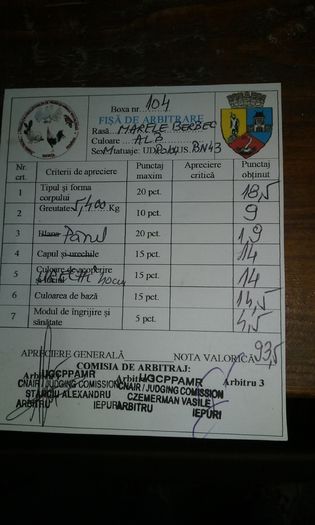 Boxa nr. 104
FIȘĂ DE ARBITRARE
Rasă MARELE BERBEC
Culoare ALB
Sex M tatuaje: UD RO104 US. BN43
Nr. crt. Criterii de apreciere Punctaj maxim Apreciere critică Punctaj obținut
1 Tipul și forma corpului 20 pct. 18,5
2 Greutatea 5,400 Kg 10 pct. 9
3 Blana Părul 20 pct. 1,9
4 Capul și urechile 15 pct. 14
5 Culoare de acoperire URECHI 40cm 15 pct. 14
6 Culoarea de bază 15 pct. 14,5
7 Modul de îngrijire și sănătate 5 pct. 4,5
APRECIERE GENERALĂ NOTA VALORICĂ 93,5
COMISIA DE ARBITRAJ:
Arbitru 1 Arbitru 2 Arbitru 3
UGCPPAMR UGCPPAMR
CNAIR / JUDGING COMISSION CNAIR / JUDGING COMISSION
STARCIU ALEXANDRU CZEMERMAN VASILE
ARBITRU IEPURI ARBITRU IEPURI